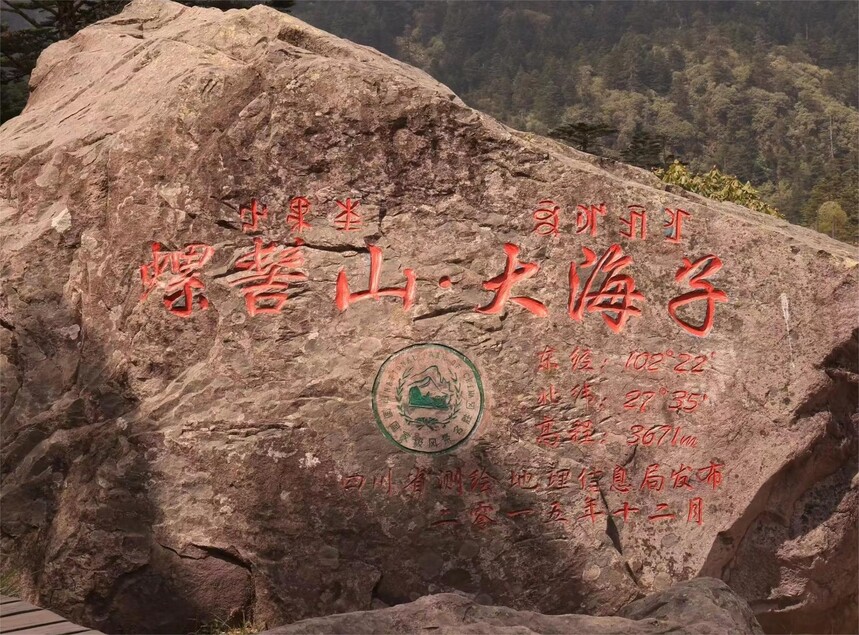 螺髻山·大海子
东经：102°22′
北纬：27°35′
高程：3671m
四川省测绘地理信息局发布
二零一五年十二月